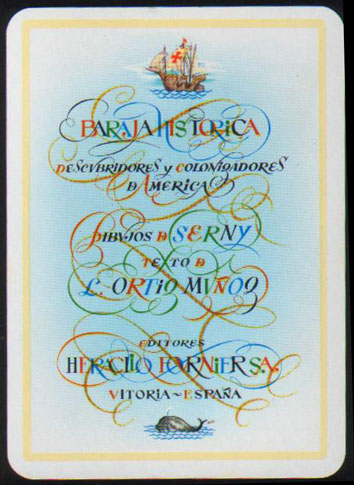 BARAJA HISTORICA
DESCVBRIDORES y COLONIZADORES
D AMERICA
DIBVJOS D SERNY
TEXTO D
L. ORTIZ MVÑOZ
EDITORES
HERACLIO FOVRNIER S.A.
VITORIA~ESPAÑA